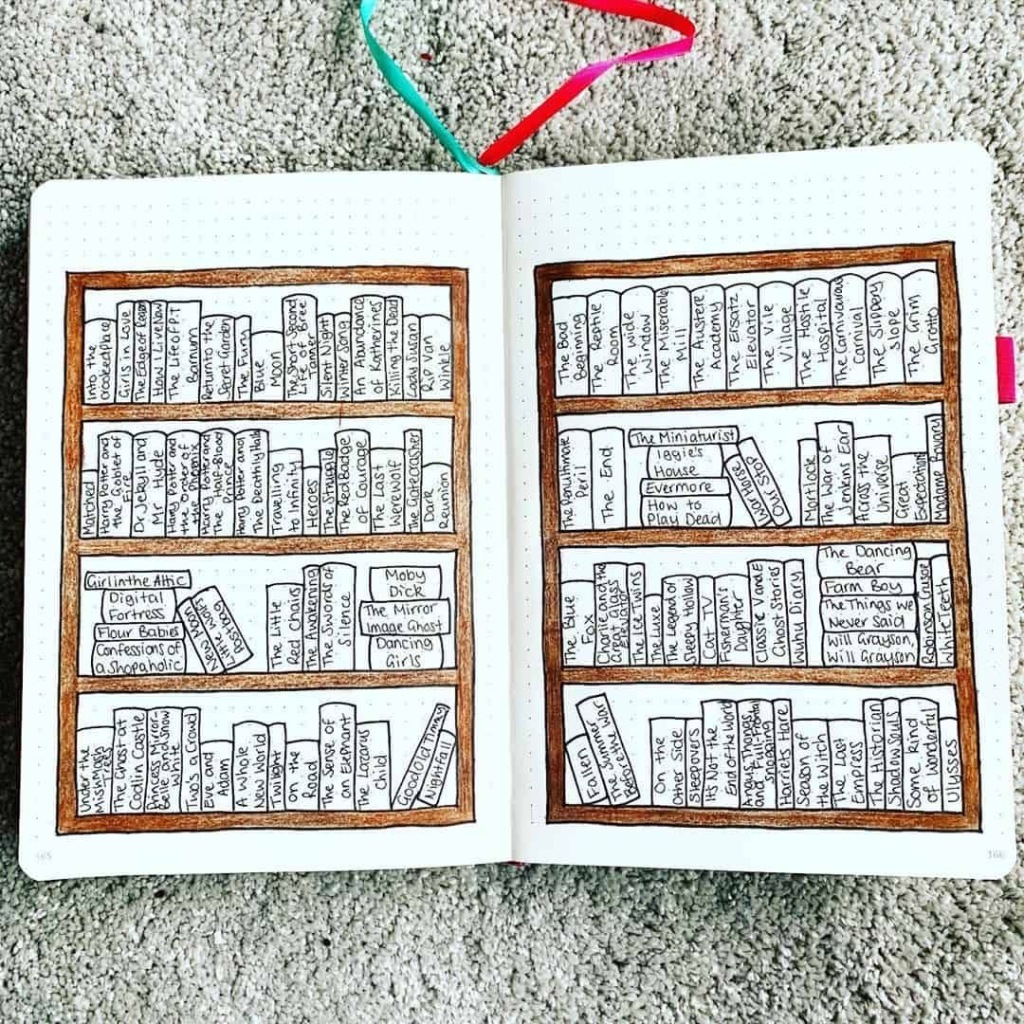 Into the
crooked Place
Girls in Love
The Edge of Reason
How I Live Now
The Life of P.T
Barnum
Return to the
Secret Garden
The Fury
Blue
Moon
The Short Second
Life of Bree
Tanner
Silent Night
Winter Song
An Abundance
of Katherines
Killing the Dead
Lady Susan
Rip Van
Winkle
Matched
Harry Potter and
the Goblet of
Fire
Dr Jekyll and
Mr Hyde
Harry Potter and
the Order of
the Phoenix
Harry Potter and
The Half-Blood
Prince
Harry Potter and
The Deathly Hallows
Travelling
to Infinity
Heroes
The Struggle
The Red Badge
of Courage
The Last
Werewolf
The Gatecrasher
Dark
Reunion
Girl in the Attic
Digital
Fortress
Flour Babies
Confessions of
a Shopaholic
New Moon
Little Wolf's
Postbag
The Little
Red Chairs
The Awakening
The Swords of
Silence
Moby
Dick
The Mirror
Image Ghost
Dancing
Girls
Under the
Wishmoley
Trees
The Ghost at
Codlin Castle
Princess Mirror-
Belle and Snow
White
Two's a Crowd
Eve and
Adam
A Whole
New World
Twilight
on the
Road
The Sense of
an Elephant
The Lazarus
Child
Good Old Timmy
Nightfall
165
The Bad
Beginning
The Reptile
Room
The Wide
Window
The Miserable
Mill
The Austere
Academy
The Ersatz
Elevator
The Vile
Village
The Hostile
Hospital
The Carnivorous
Carnival
The Slippery
Slope
The Grim
Grotto
The Penultimate
Peril
The End
The Miniaturist
Iggie's
House
Evermore
How to
Play Dead
War Horse
Our Stop
Mortlock
The War of
Jenkins Ear
Across the
Universe
Great
Expectations
Madame Bovary
The Blue
Fox
Charlie and the
Great Glass
Elevator
The Ice Twins
The Luxe
The Legend of
Sleepy Hollow
Cat TV
Fisherman's
Daughter
Classic V and E
Ghost Stories
Whu Diary
The Dancing
Bear
Farm Boy
The Things we
Never Said
Will Grayson,
Will Grayson
Robinson Crusoe
White Teeth
Fallen
The Summer
Before the War
On the
Other Side
Sleepovers
It's Not the
End of the World
Angus, Thongs
and Full-Frontal
Snogging
Harriet's Hare
Season of
the Witch
The Last
Empress
The Historian
Shadow Souls
Some Kind
of Wonderful
Ulysses
166